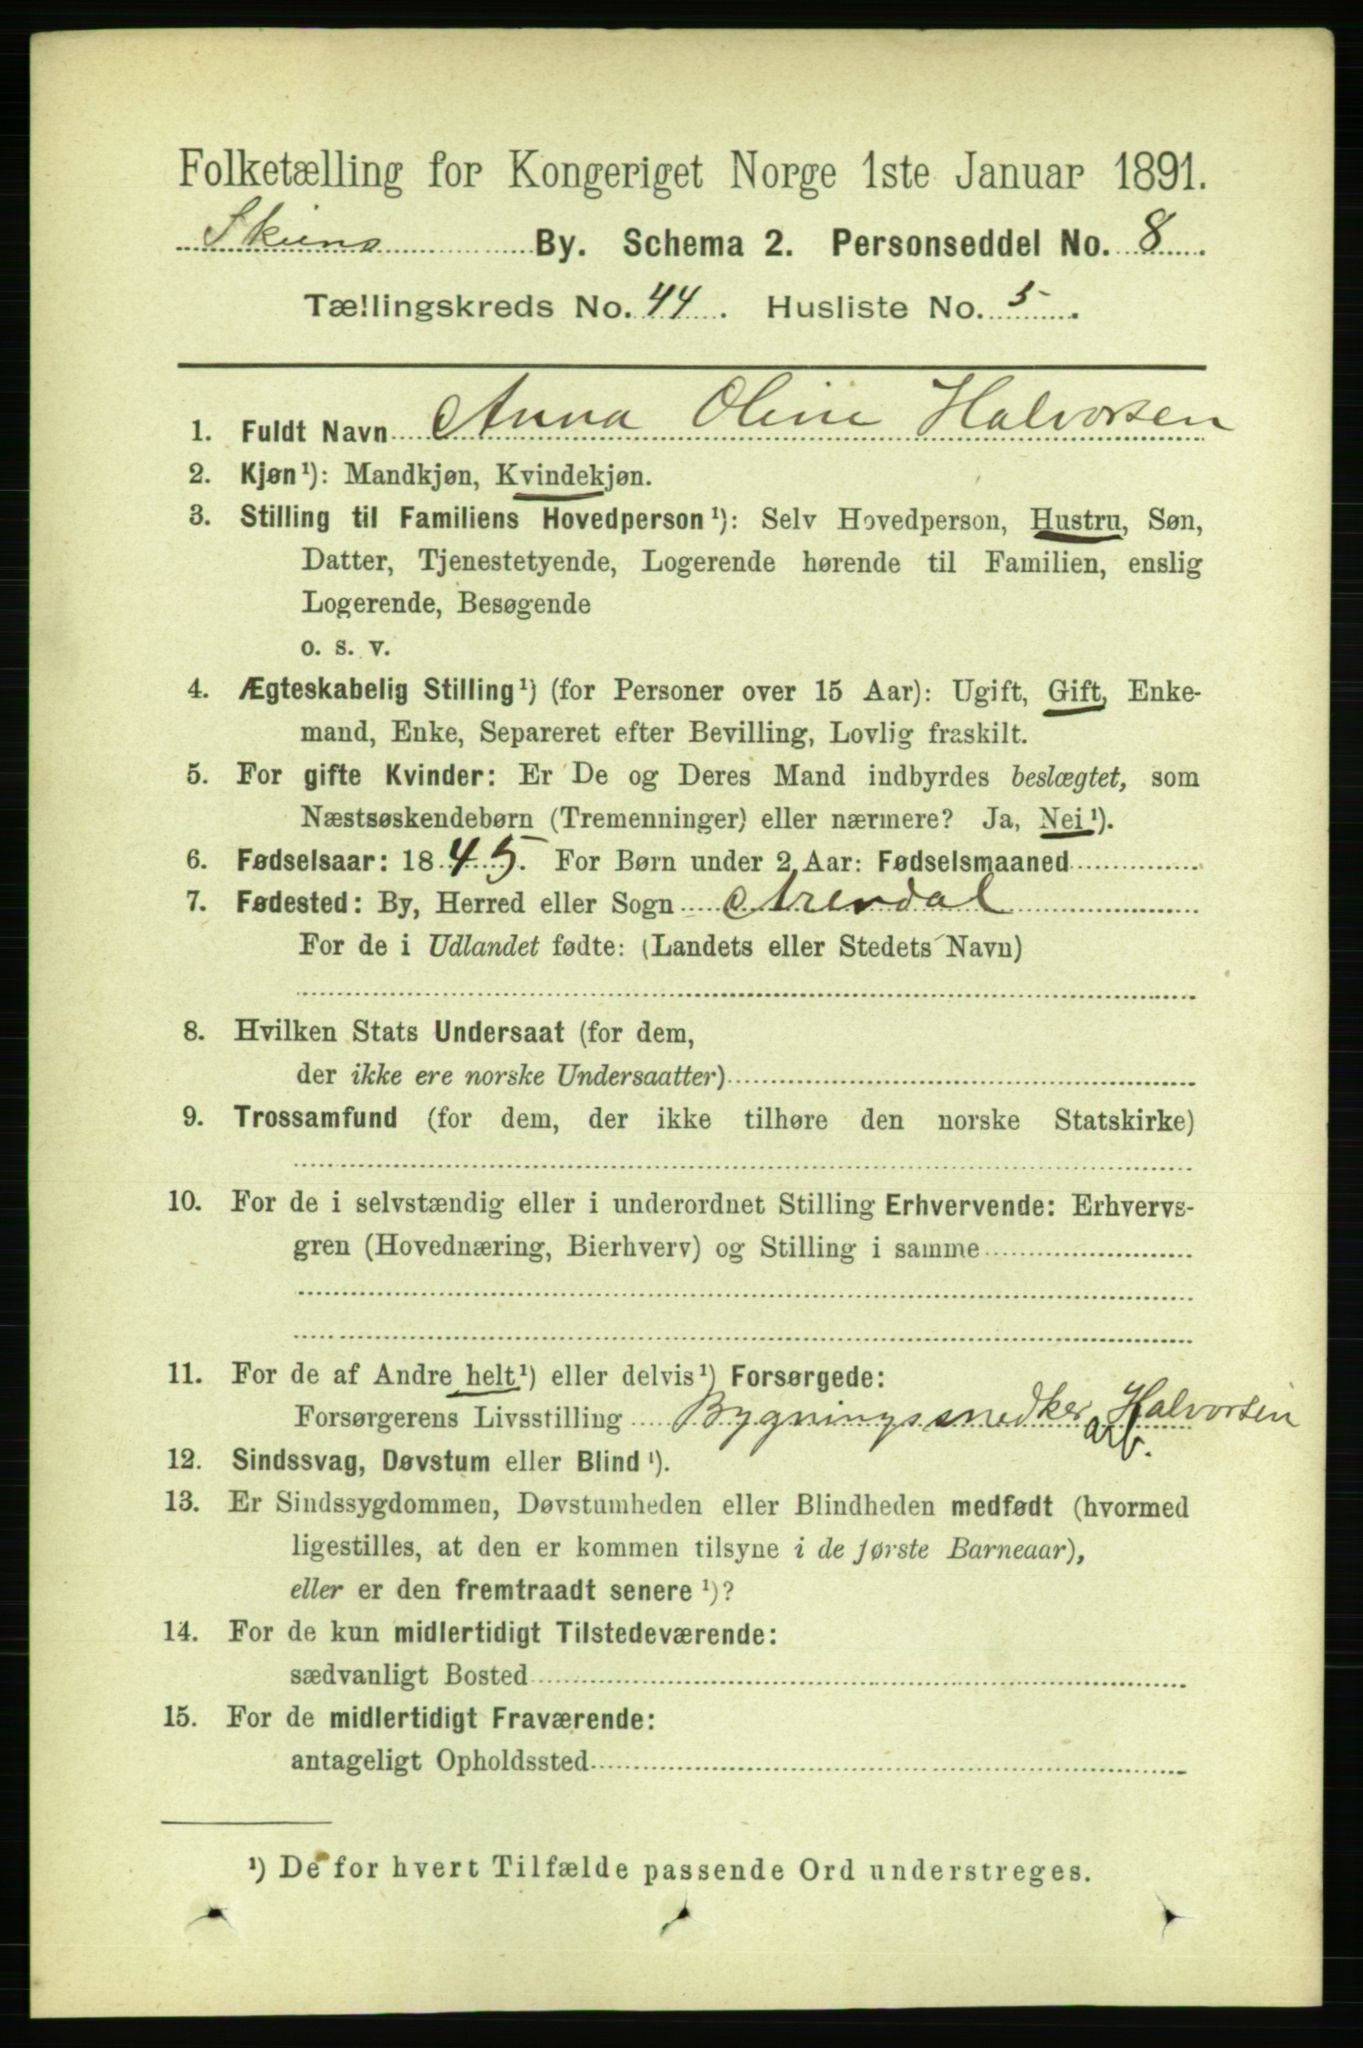 Folketælling for Kongeriget Norge 1ste Januar 1891.
Skiens By. Schema 2. Personseddel No. 8.
Tællingskreds No. 44. Husliste No. 5.
1. Fuldt Navn Anna Oline Halvorsen
2. Kjøn¹): Mandkjøn, Kvindekjøn.
3. Stilling til Familiens Hovedperson¹): Selv Hovedperson, Hustru, Søn,
Datter, Tjenestetyende, Logerende hørende til Familien, enslig
Logerende, Besøgende
o. s. v.
4. Ægteskabelig Stilling¹) (for Personer over 15 Aar): Ugift, Gift, Enke-
mand, Enke, Separeret efter Bevilling, Lovlig fraskilt.
5. For gifte Kvinder: Er De og Deres Mand indbyrdes beslægtet, som
Næstsøskendebørn (Tremenninger) eller nærmere? Ja, Nei¹).
6. Fødselsaar: 1845. For Børn under 2 Aar: Fødselsmaaned
7. Fødested: By, Herred eller Sogn Arendal
For de i Udlandet fødte: (Landets eller Stedets Navn)
8. Hvilken Stats Undersaat (for dem,
der ikke ere norske Undersaatter)
9. Trossamfund (for dem, der ikke tilhøre den norske Statskirke)
10. For de i selvstændig eller i underordnet Stilling Erhvervende: Erhvervs-
gren (Hovednæring, Bierhverv) og Stilling i samme
11. For de af Andre helt¹) eller delvis¹) Forsørgede:
Forsørgerens Livsstilling Bygningssnedker Halvorsen
arb.
12. Sindssvag, Døvstum eller Blind¹).
13. Er Sindssygdommen, Døvstumheden eller Blindheden medfødt (hvormed
ligestilles, at den er kommen tilsyne i de første Barneaar),
eller er den fremtraadt senere¹)?
14. For de kun midlertidigt Tilstedeværende:
sædvanligt Bosted
15. For de midlertidigt Fraværende:
antageligt Opholdssted
¹) De for hvert Tilfælde passende Ord understreges.